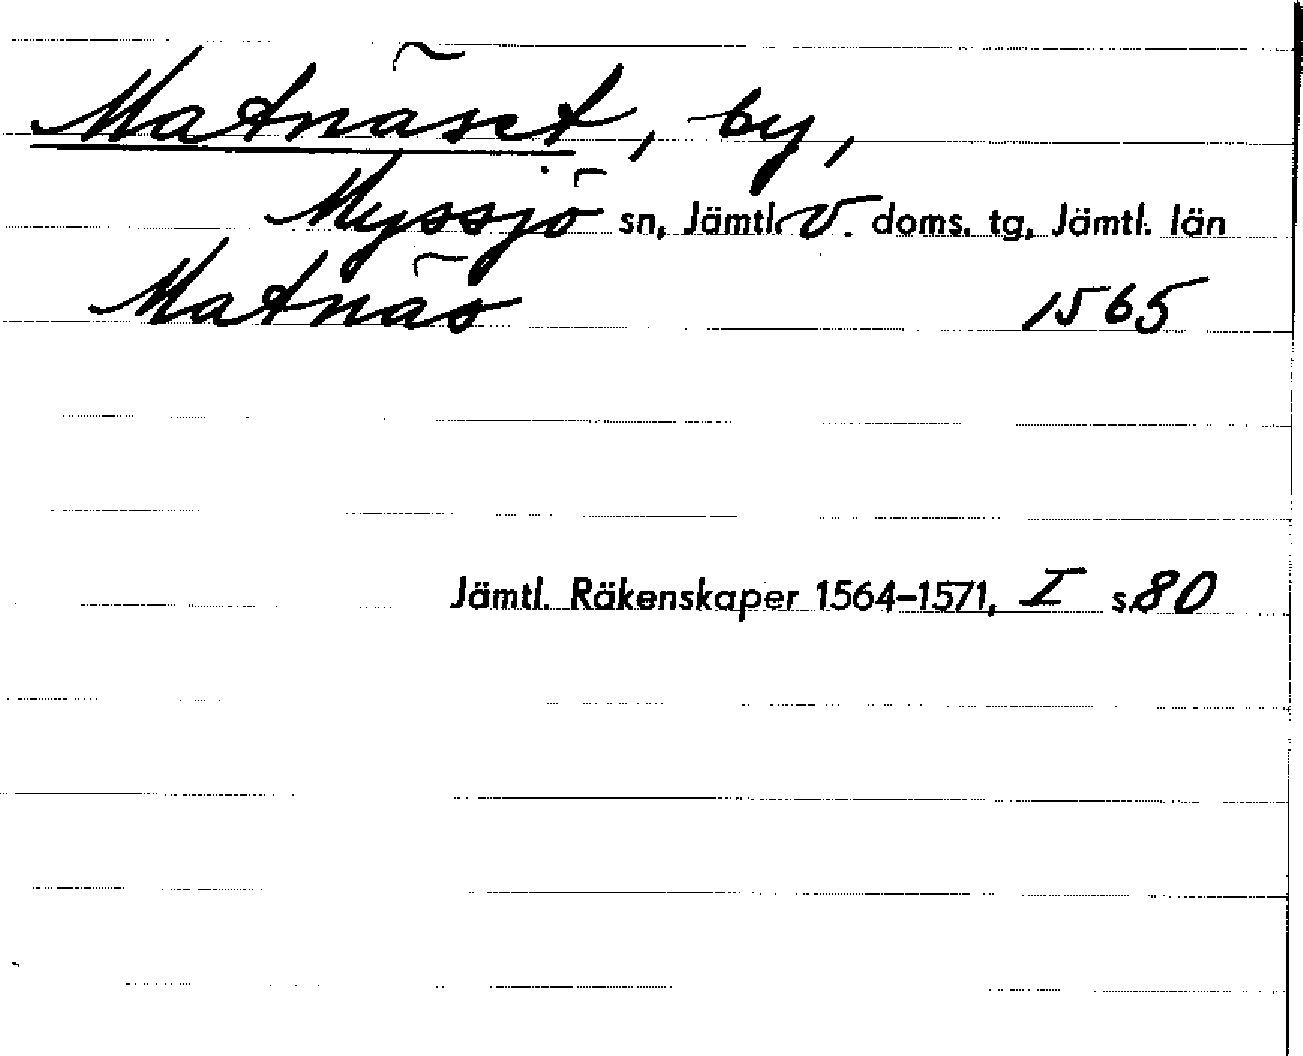 Matnäset, by,
Myssjö sn, Jämtl. V. doms. tg, Jämtl. län
Matnäs 1565
Jämtl. Räkenskaper 1564–1571, I s. 80